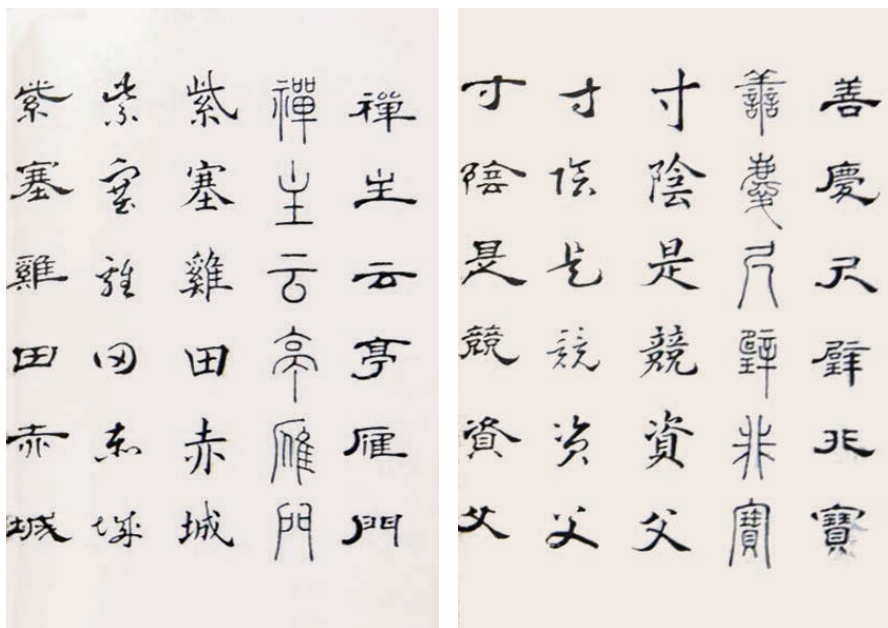 善慶尺璧非寶
譱慶尺璧非寶
寸陰是競資父
寸陰是競資父
寸陰是競資父
禪主云亭雁門
禪主云亭雁門
紫塞雞田赤城
紫塞雞田赤城
紫塞雞田赤城